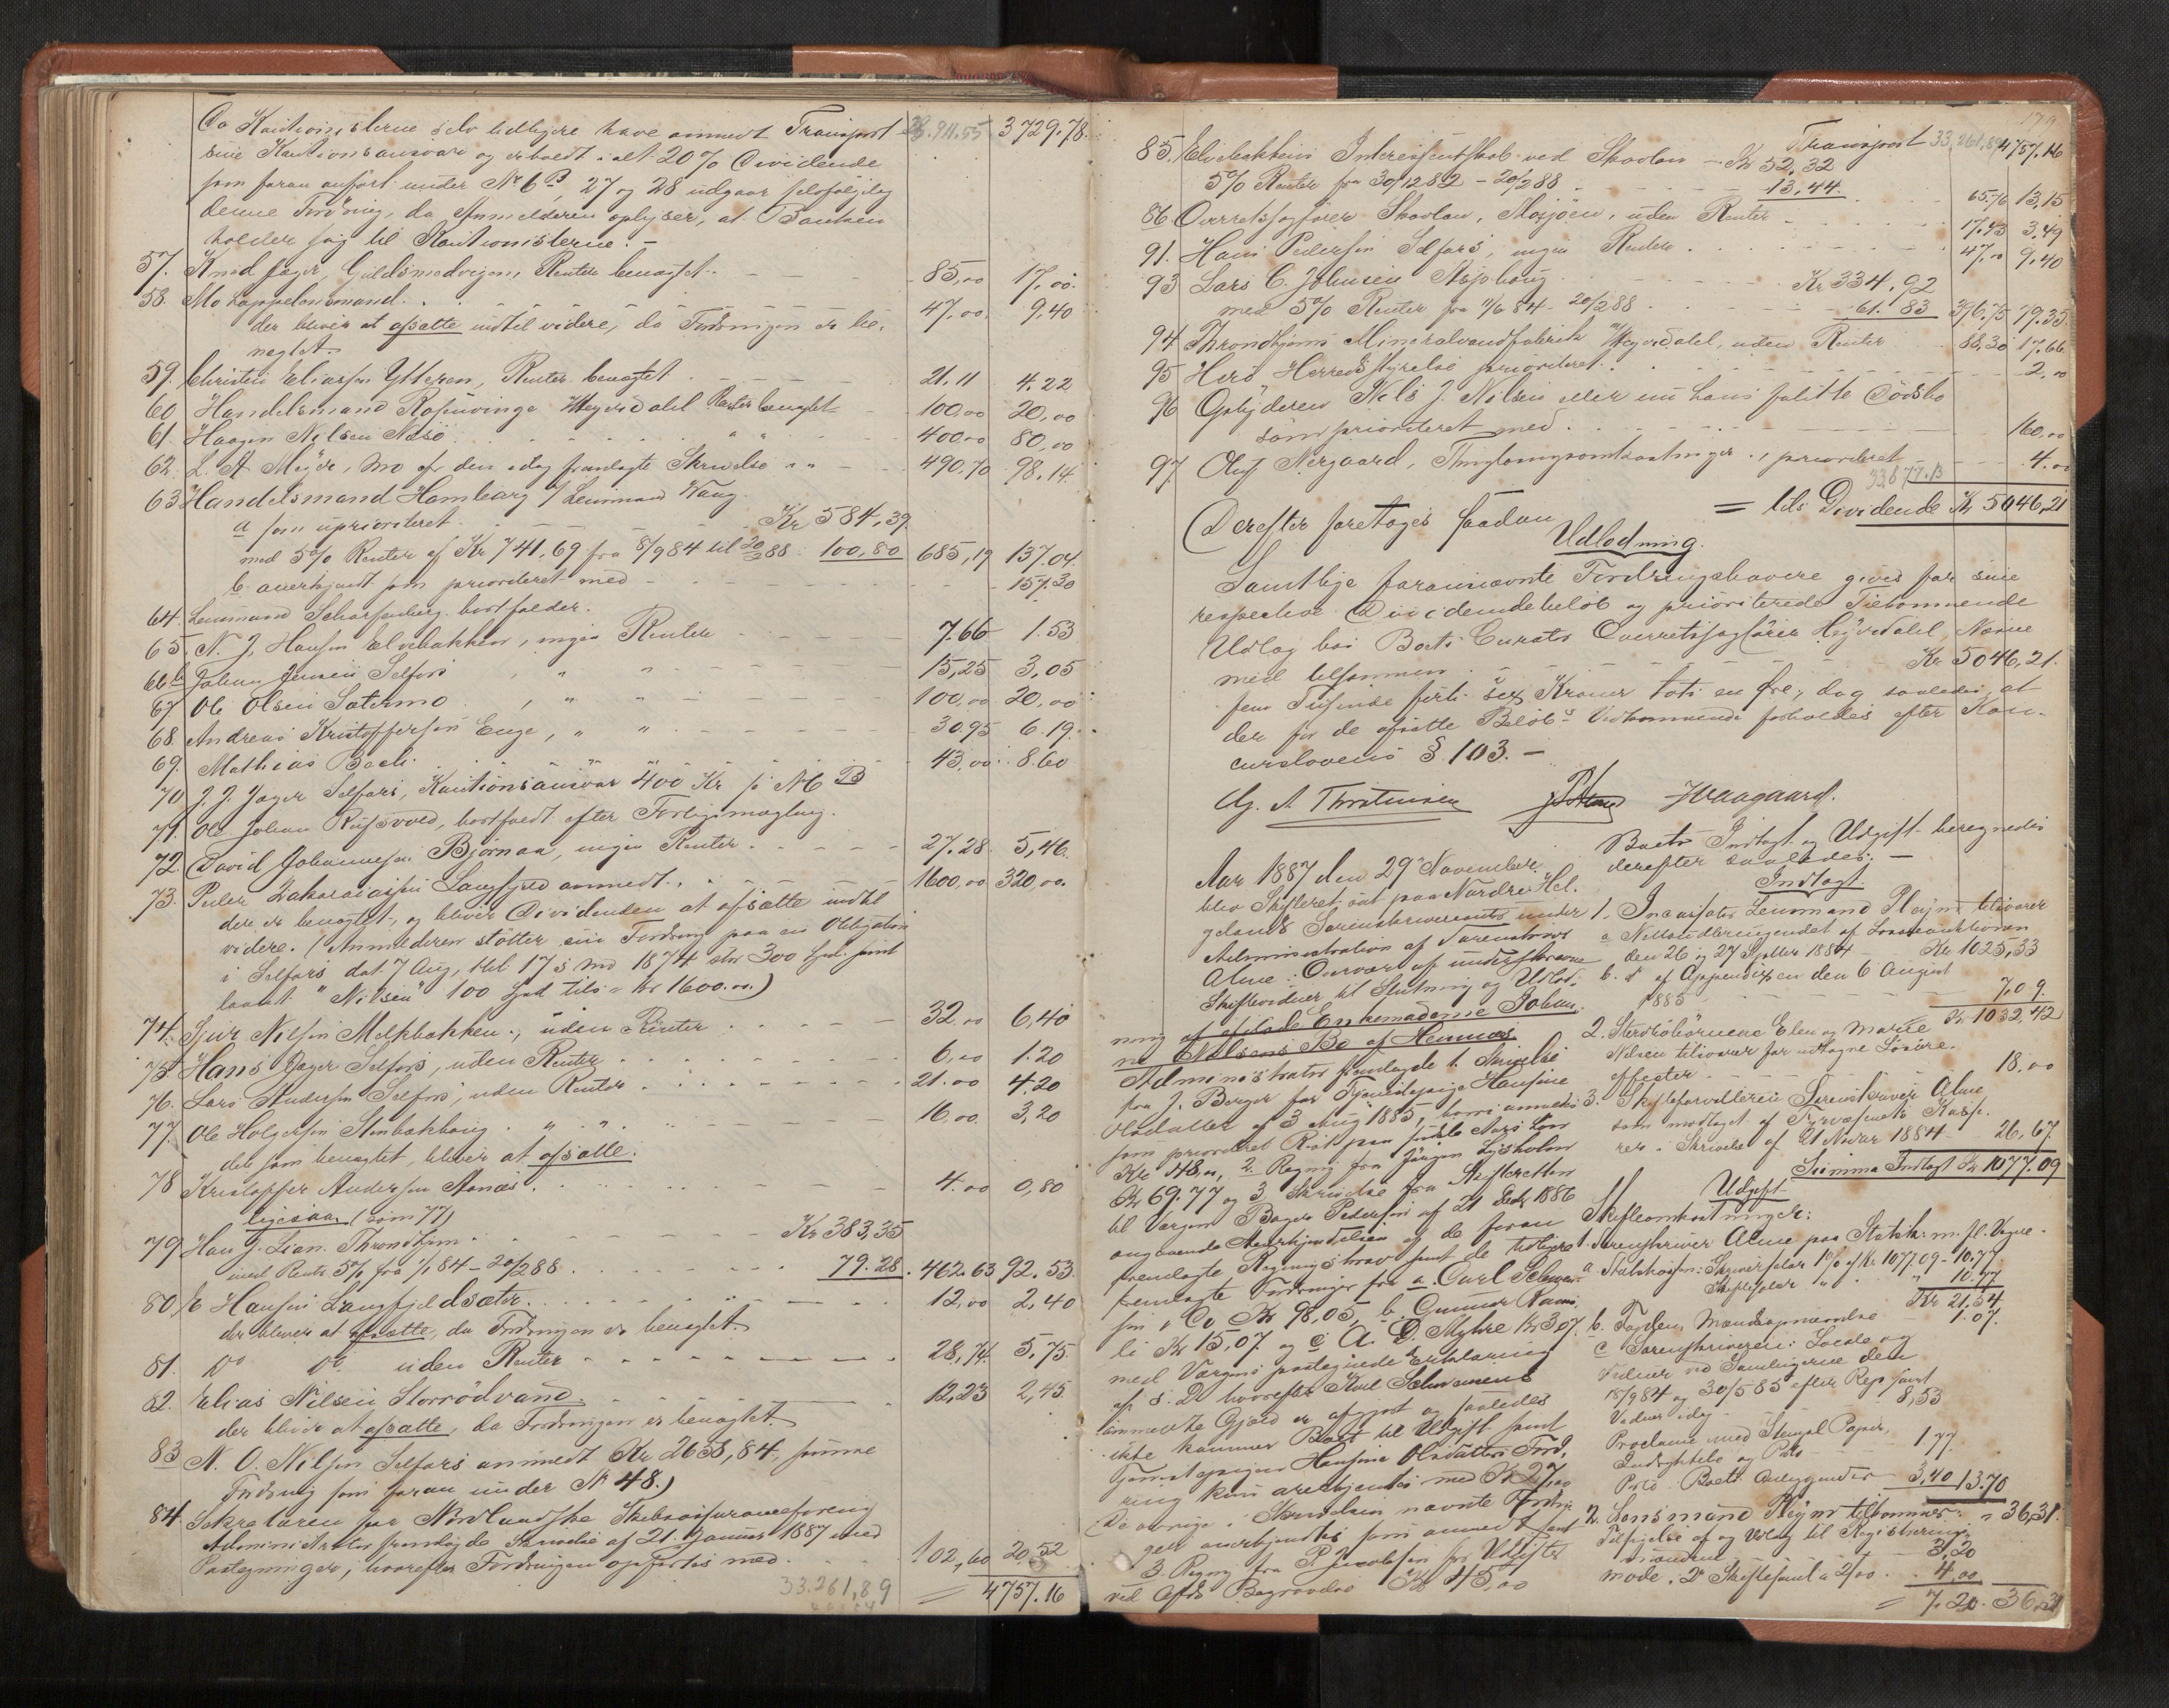 Da Kautionisterne selv tidligere have anmeldt Transport 28.911.55 3729.78
sine Kautionsansvar og erholdt i alt 20% Dividende
som foran anført under No 6 B, 27 og 28 udgaar selvfølgelig
denne Fordring, da Anmelderen oplyser, at Banken
holder sig til Kautionisterne. -
57. Knud Jæger, Guldsmedvigen, Renter benægtet 85,00 17,00
58. Mo Lappelensmand 47,00 9,40
der bliver at afsætte indtil videre, da Fordringen er be-
nægtet.
59. Christen Eliassen Ytteren, Renter benægtet 21,11 4.22
60 Handelsmand Rosenvinge v/Heyerdahl Renter benægtet 100,00 20,00
61. Haagen Nilsen Næsø " " 400,00 80,00
62. L. A. Meyer, Mo efter den idag fremlagte Skrivelse " " 490,70 98,14
63 Handelsmand Hamberg v/ Lensmand Waag
a som uprioriteret Kr 584,39
med 5% Renter af Kr 741,69 fra 8/9 84 til 20/2 88 100,80 685,19 137.04
b. anerkjendt som prioriteret med 157.30
64. Lensmand Scharffenberg bortfalder.
65. N. J. Hansen Elvebakken, ingen Renter 7.66 1.53
66b Johan Jensen Selfors , " 15,25 3,05
67 Ole Olsen Sætermo , " " 100,00 20,00
68. Andreas Kristoffersen Enge, " " 30.95 6.19
69. Mathias Bech " " 43,00 8.60
70 J. J. Jæger Selfors, Kautionsansvar 400 Kr se No 6 B
71. Ole Johan Rufsvold, bortfaldt efter Forligsmægling.
72. David Johannesen Bjørnaa, ingen Renter 27.28 5,46
73. Peder Zakariassen Langfjeld anmeldt 1600,00 320,00
der er benægtet, og bliver Dividenden at afsætte indtil
videre. (Anmelderen støtter sin Fordring paa en Obligation
i Selfors dat. 7 Aug, thl. 17 s. md 1874 stor 300 Spd. samt
laant "Nilsen" 100 Spd tils = Kr 1600.00)
74. Sjur Nilsen Melkbakken, uden Renter 32,00 6,40
75 Hans Jæger Selfors, uden Renter 6,00 1.20
76. Lars Andersen Selfors, uden Renter 21.00 4.20
77. Ole Holgersen Stenbakhaug " " 16,00 3,20
der som benægtet, bliver at afsætte.
78 Kristoffer Andersen Aanæs 4.00 0,80
ligesaa (som 77)
79 Han J. Lian Throndhjem Kr 383,35
med Rente 5% fra 1/1 84 - 20/2 88 79.28 462.63 92.53
80 E Hansen Langfjeldsæter 12,00 2,40
der bliver at afsætte, da Fordringen er benægtet.
81. Do Do uden Renter 28,74 5.75
82. Elias Nilsen Storrødvand 12,23 2,45
der bliver at afsætte, da Fordringen er benægtet.
83 N. O. Nilsen Selfors anmeldt Kr 2658,84, samme
Fordring som foran under No 48.)
84. Sekretæren for Nordlandske Skibsassuranceforeng
Administrator fremlagde Skrivelse af 21. Januar 1887 med
Paategninger, hvorefter Fordringen opførtes med 102,60 20,52
33.261,89 = 4757.16
179
Transport 33,261,89 4757,16
85. Elvebakkens Interessentskab ved Skavlan - Kr 52,32
5% Renter fra 30/12 82 - 20/2 88 13,44 65.76 13,15
86 Overretssagfører Skavlan, Mosjøen, uden Renter 17,43 3,49
91. Hans Pedersen Selfors, ingen Renter 47,00 9,40
93 Lars C. Johnsen Asphaug Kr 334,92
med 5% Renter fra 11/6 84 - 20/2 88 61.83 396.75 79.35
94 Throndhjems Mineralvandfabrik v/Heyerdahl, uden Renter 88,30 17,66
95 Herø Herredsstyrelse prioriteret 2,00
96 Opsyderen Nils J. Nilsen eller nu hans fallitte Dødsbo
som prioriteret med 160,00
97. Oluf Nergaard, Thinglæsningsomkostninger, prioriteret 4.00
33,877.13
= tils Dividende Kr 5046,21
Derefter foretoges saadan
Udlodning.
Samtlige forannævnte Fordringshavere gives for sine
respective Dividendebeløb og prioriterede Tilkommende
Udlæg hos Boets Curator Overretssagfører Heyerdahl, Næsne
med tilsammen Kr 5046,21.
fem Tusinde firti sex Kroner toti en Øre, dog saaledes at
der for de afsatte Beløbs Vedkommende forholdes efter Kon-
curslovens § 103. -
G. A. Thortensen Haagaard.
Aar 1887 den 29 November
blev Skifteret sat paa Nordre Hel-
gelands Sorenskriverembede under
Administration af Sorenskriver
Alme i Overvær af undertskrevne
Skiftevidner til Slutning og Udlod-
ning af afdøde Enkemadame Johan-
ne Nilsens Bo af Hemnæs
Administrator fremlagde 1. Skrivelse
fra J. Berger for Tjenestepige Hansine
Olsdatter af 3 Aug 1885, hvori anmeldes
som prioriteret Krav paa et halvt Aars Løn
Kr 48,00, 2. Regning fra Jørgen Lysholm
Kr 69.77 og 3 Skrivelse fra Skifteretten
til Værgen Bager Pedersen af 21 Decbr 1886
angaaende Anerkjendelsen af de foran
fremlagte Regningskrav samt de tidligere
fremlagte Fordringer fra a. Carl Schwen-
sen & Co Kr 98,05, b. Gunnar Rams
li Kr 15,07 og c A. D. Myhre Kr 3,07.
med Værgens paategnede Erklæring
af s. D. hvorefter Karl Schwensens
anmeldte Gjæld er afgjort og saaledes
ikke kommer Boet til Udgift samt
Tjenestepigen Hansine Olsdatters Ford-
ring kun anerkjendes med Kr 27,00
De øvrige i Skrivelsen nævnte Fordrin-
ger anerkjendtes som anmeldt samt
3. Regning fra P. Jacobsen for Udgifter
ved Afdø Begravelse Kr 45,00
Boets Indtægt og Udgift beregnedes
derefter saaledes: -
Indtægt.
1. Incassator Lensmand Pleym tilsvarer
a Nettoudbringendet af Løsøreauktionen
den 26 og 27 Septbr 1884 Kr 1025,33
b. Do af Appendixen den 6 August
1885 7,09
Kr 1032,42
2. Stervbobørnene Elen og Marie
Nilsen tilsvarer for udtagne Løsøre-
effecter 18,00
3. Skifteforvalteren Sorenskriver Alme
som modtaget af Fyrvæsenets Kasse-
rer i Skrivelse af 21 Novbr 1884 26,67
Summa Indtægt Kr 1077.09
Udgift
Skifteomkostninger:
1. Sorenskriver Alme paa Statsk. m. fl. Vegne
a Statskassen: Skriversalær 1% af Kr 1077.09 - 10,77
Skiftesalær " " 10.77
Kr 21,54
b. Fogden, Mandsopnævnelse 1.07.
c Sorenskriveren: Locale og
Vidner ved Samlingerne den
18/9 84 og 30/5 85 efter Regn. samt
Vidner idag 8,53
Proclama med Stempl. Papir,
Indrykkelse og Porto 1.77
Porto Boets Anliggender 3,40 13.70
36,31
2. Lensmand Pleym tilkommer:
Tilsigelse af og Udlæg til Registrerings-
mændene 3,20
møde i 2 Skiftesaml. a 2,00 4,00
= 7.20 36,31